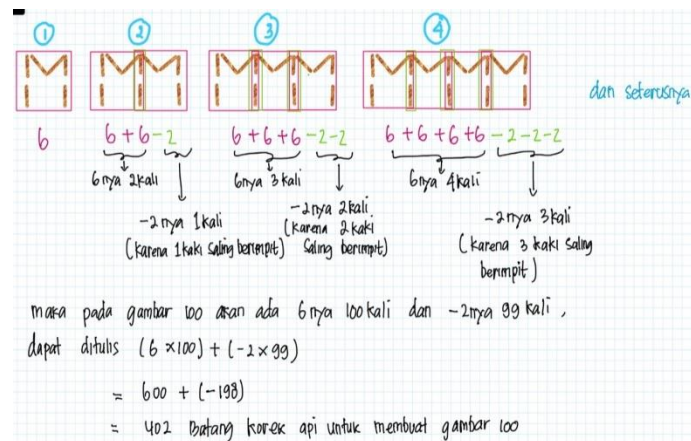 1 2 3 4
dan seterusnya
6 6 + 6 - 2 6 + 6 + 6 - 2 - 2 6 + 6 + 6 + 6 - 2 - 2 - 2
6 nya 2 kali 6 nya 3 kali 6 nya 4 kali
-2 nya 1 kali
(karena 1 kaki saling berimpit)
-2 nya 2 kali
(karena 2 kaki
saling berimpit)
-2 nya 3 kali
(karena 3 kaki saling
berimpit)
maka pada gambar 100 akan ada 6 nya 100 kali dan -2 nya 99 kali,
dapat ditulis (6 × 100) + (-2 × 99)
= 600 + (-198)
= 402 Batang korek api untuk membuat gambar 100